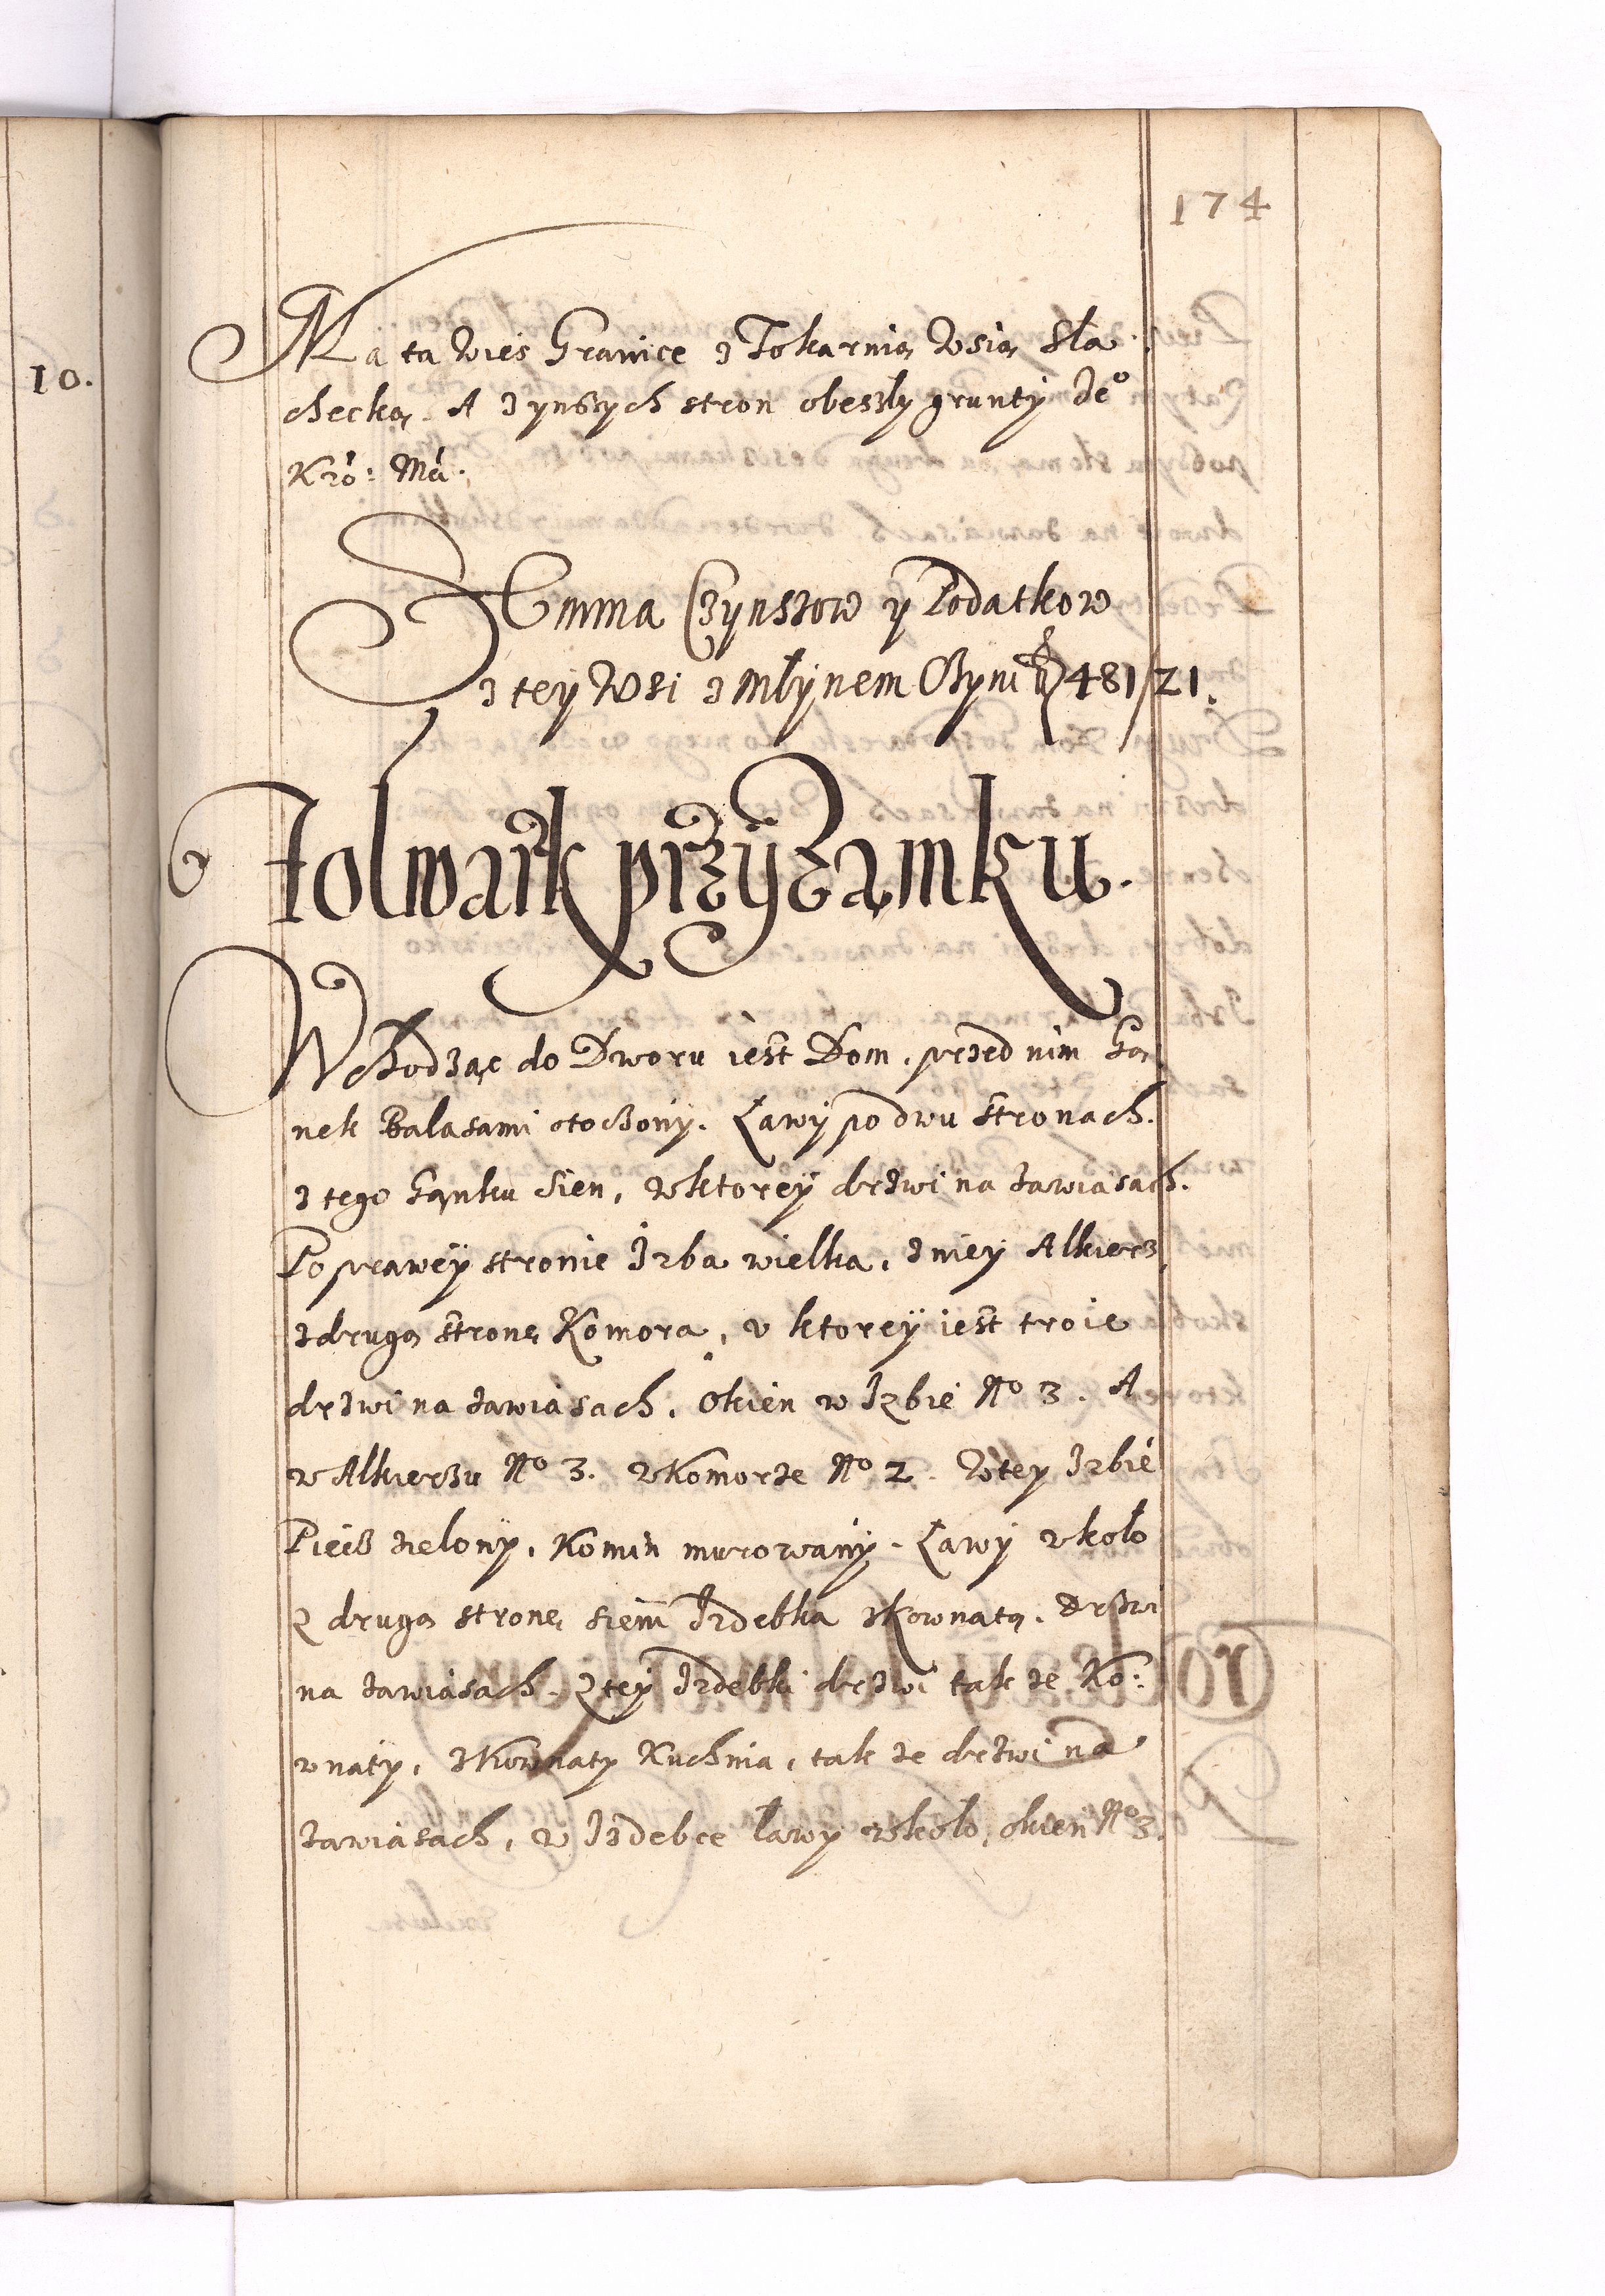 174
10.
Ma ta Wieś Granice z Tokarnią Wsią Sla:
checką. A z ynszych stron obeszly grunty Je°
Kró: Má:
Summa Czynszow y Podatkow
z tey Wsi z Młynem Czyni 481/21.
Folwark przy Zamku.
Wchodząc do Dworu iest Dom, przed nim Ga
nek Balasami otoczony. Ławy po dwu stronach.
z tego Gąnku Sien, w ktorey drzwi na zawiasach.
Po prawey stronie Izba wielka, z niey Alkierz,
z drugą stronę Komora, w ktorey iest troie
drzwi na zawiasach. Okien w Izbie N° 3. A
w Alkierzu N° 3. w Komorze N° 2. W tey Izbie
Piec zielony, Komin murowany. Ławy wkoło
Z drugą stronę sieni Izdebka z Kownatą. Drzwi
na zawiasach. Z tey Izdebki drzwi tak ze Ko:
wnaty, z Kownaty Kuchnia, tak ze drzwi na
zawiasach, w Izdebce ławy wkoło, okien N° 3.